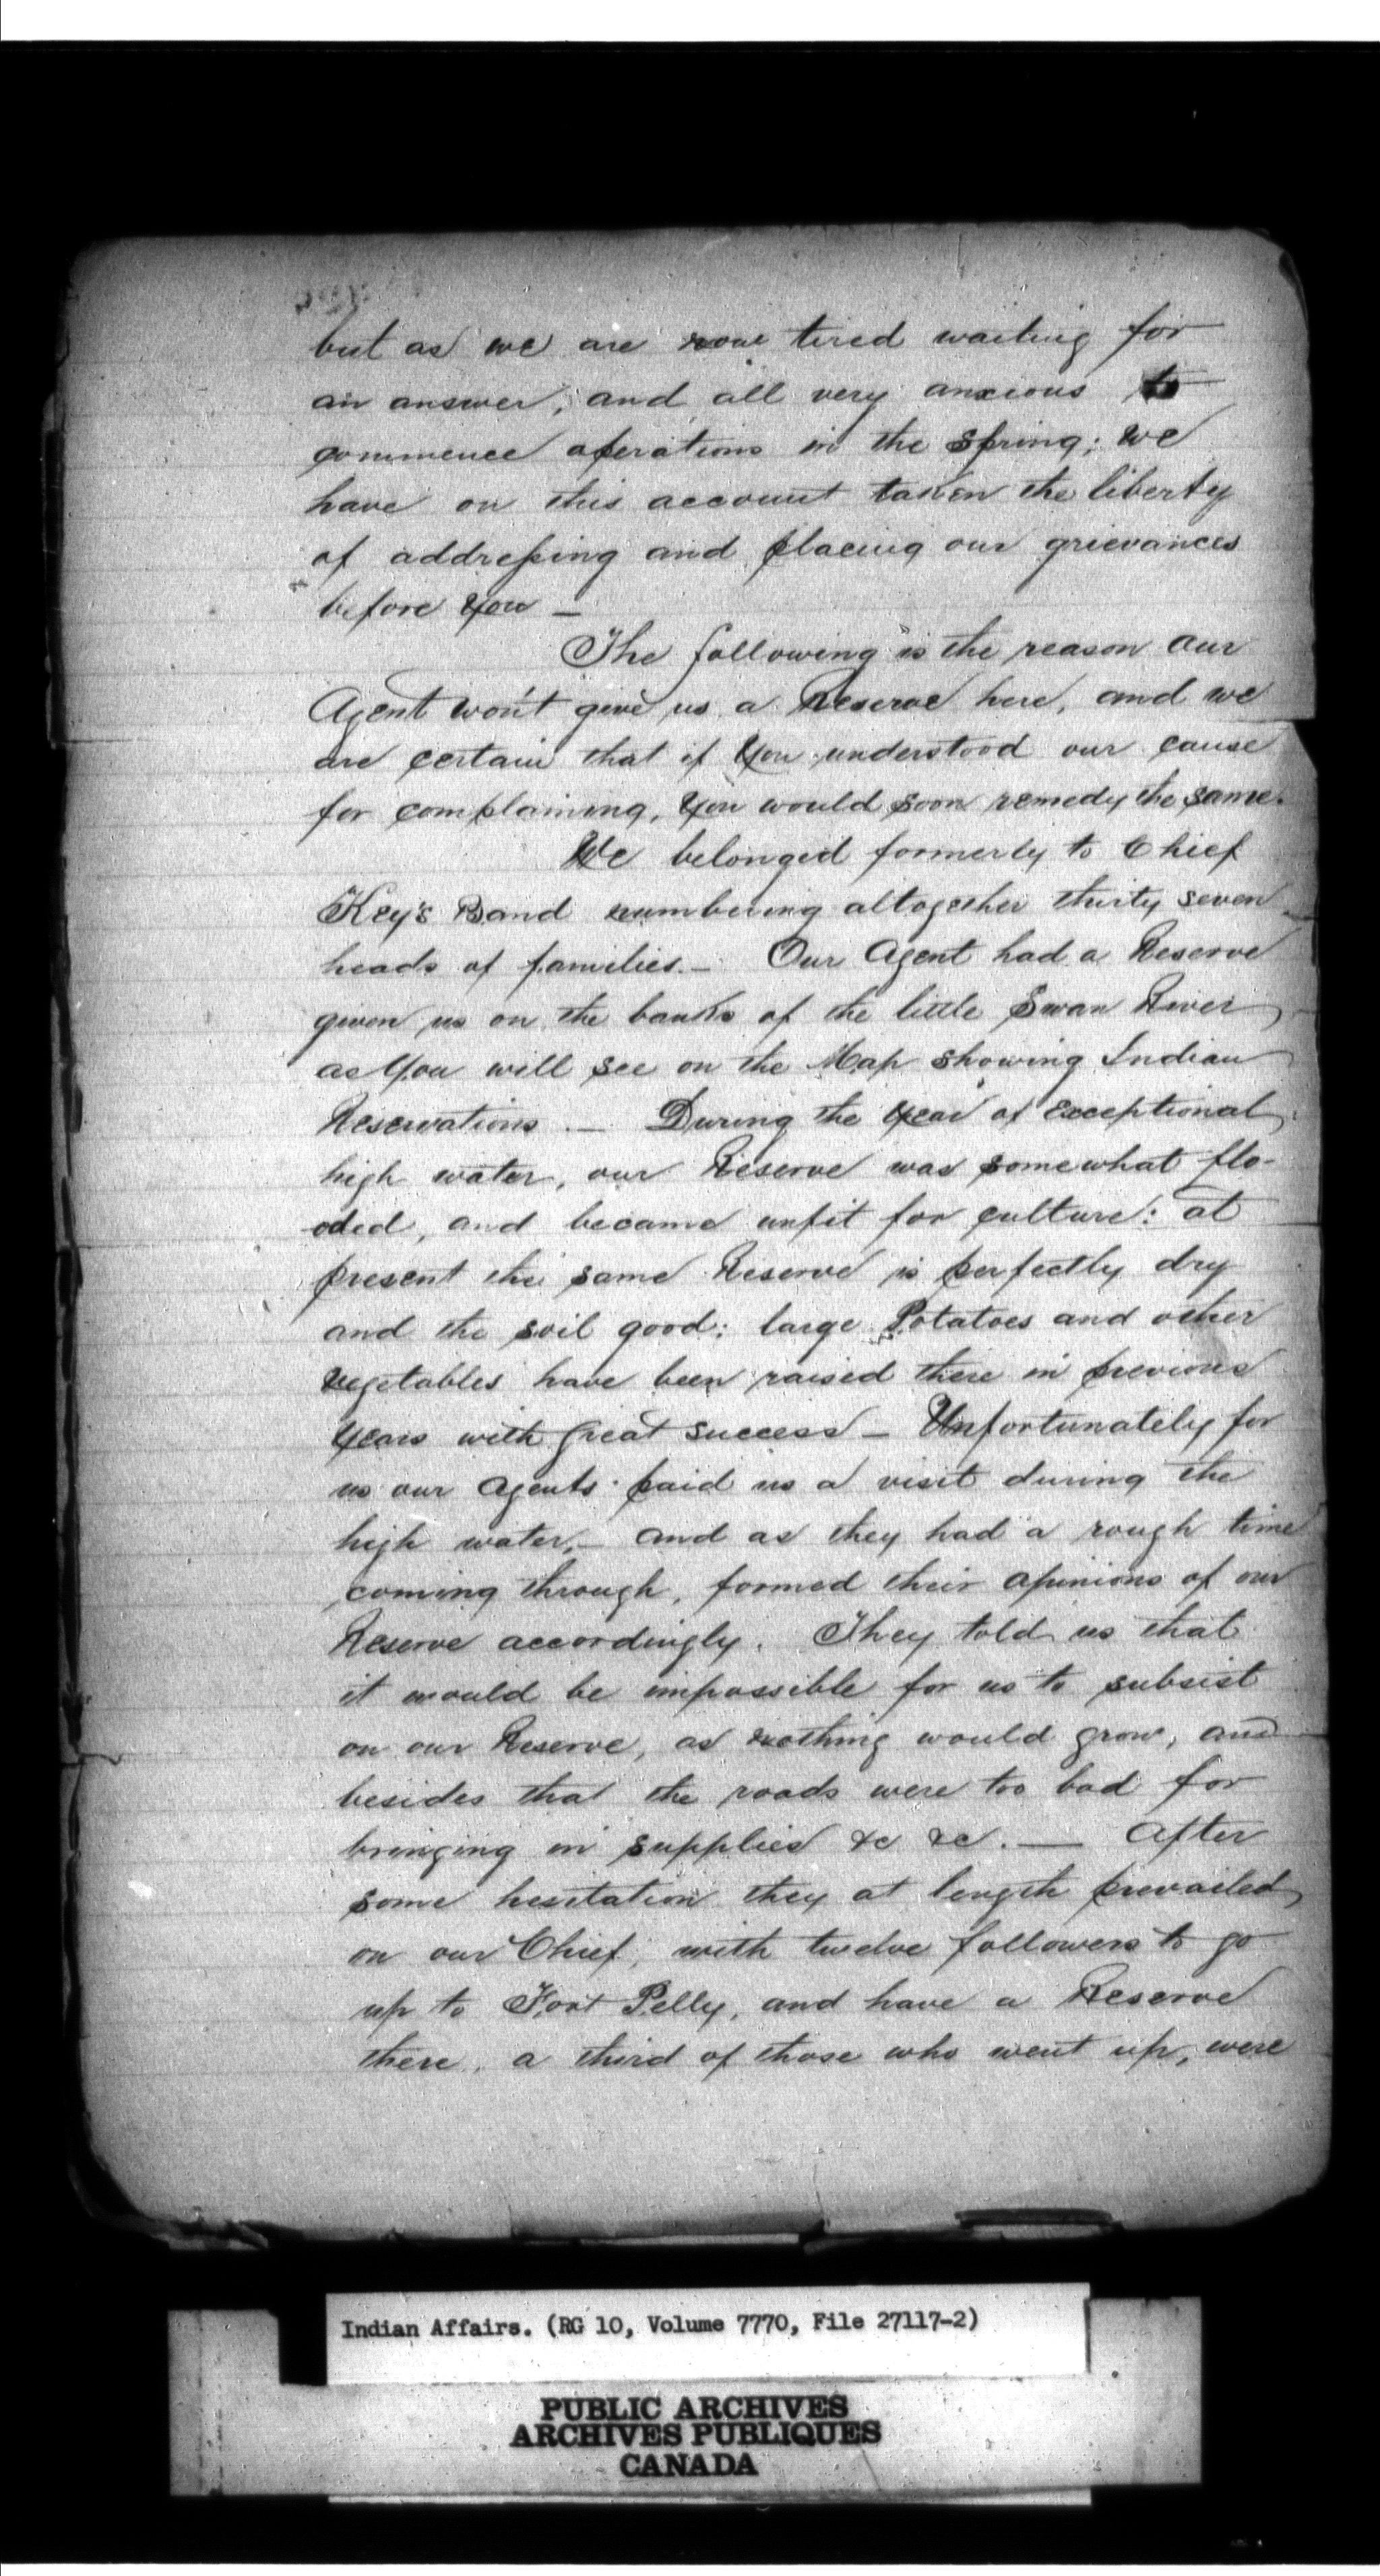 but as we are now tired waiting for
an answer, and all very anxious to
commence operations in the Spring; we
have on this account taken the liberty
of addressing and placing our grievances
before You —
The following is the reason our
Agent won't give us a Reserve here, and we
are certain that if You understood our cause
for complaining, You would soon remedy the same.
We belonged formerly to Chief
Key's Band numbering altogether thirty seven
heads of families. — Our Agent had a Reserve
given us on the banks of the little Swan River
as You will see on the Map showing Indian
Reservations — During the Year of exceptional
high water, our Reserve was somewhat flo-
oded, and became unfit for culture: at
present the same Reserve is perfectly dry
and the soil good: large Potatoes and other
vegetables have been raised there in previous
Years with great success — Unfortunately for
us our Agents paid us a visit during the
high water, — and as they had a rough time
coming through, formed their opinions of our
Reserve accordingly. They told us that
it would be impossible for us to subsist
on our Reserve, as nothing would grow, and
besides that the roads were too bad for
bringing in supplies &c &c. — After
some hesitation they at length prevailed
on our Chief, with twelve followers to go
up to Fort Pelly, and have a Reserve
there, a third of those who went up, were
Indian Affairs. (RG 10, Volume 7770, File 27117-2)
PUBLIC ARCHIVES
ARCHIVES PUBLIQUES
CANADA